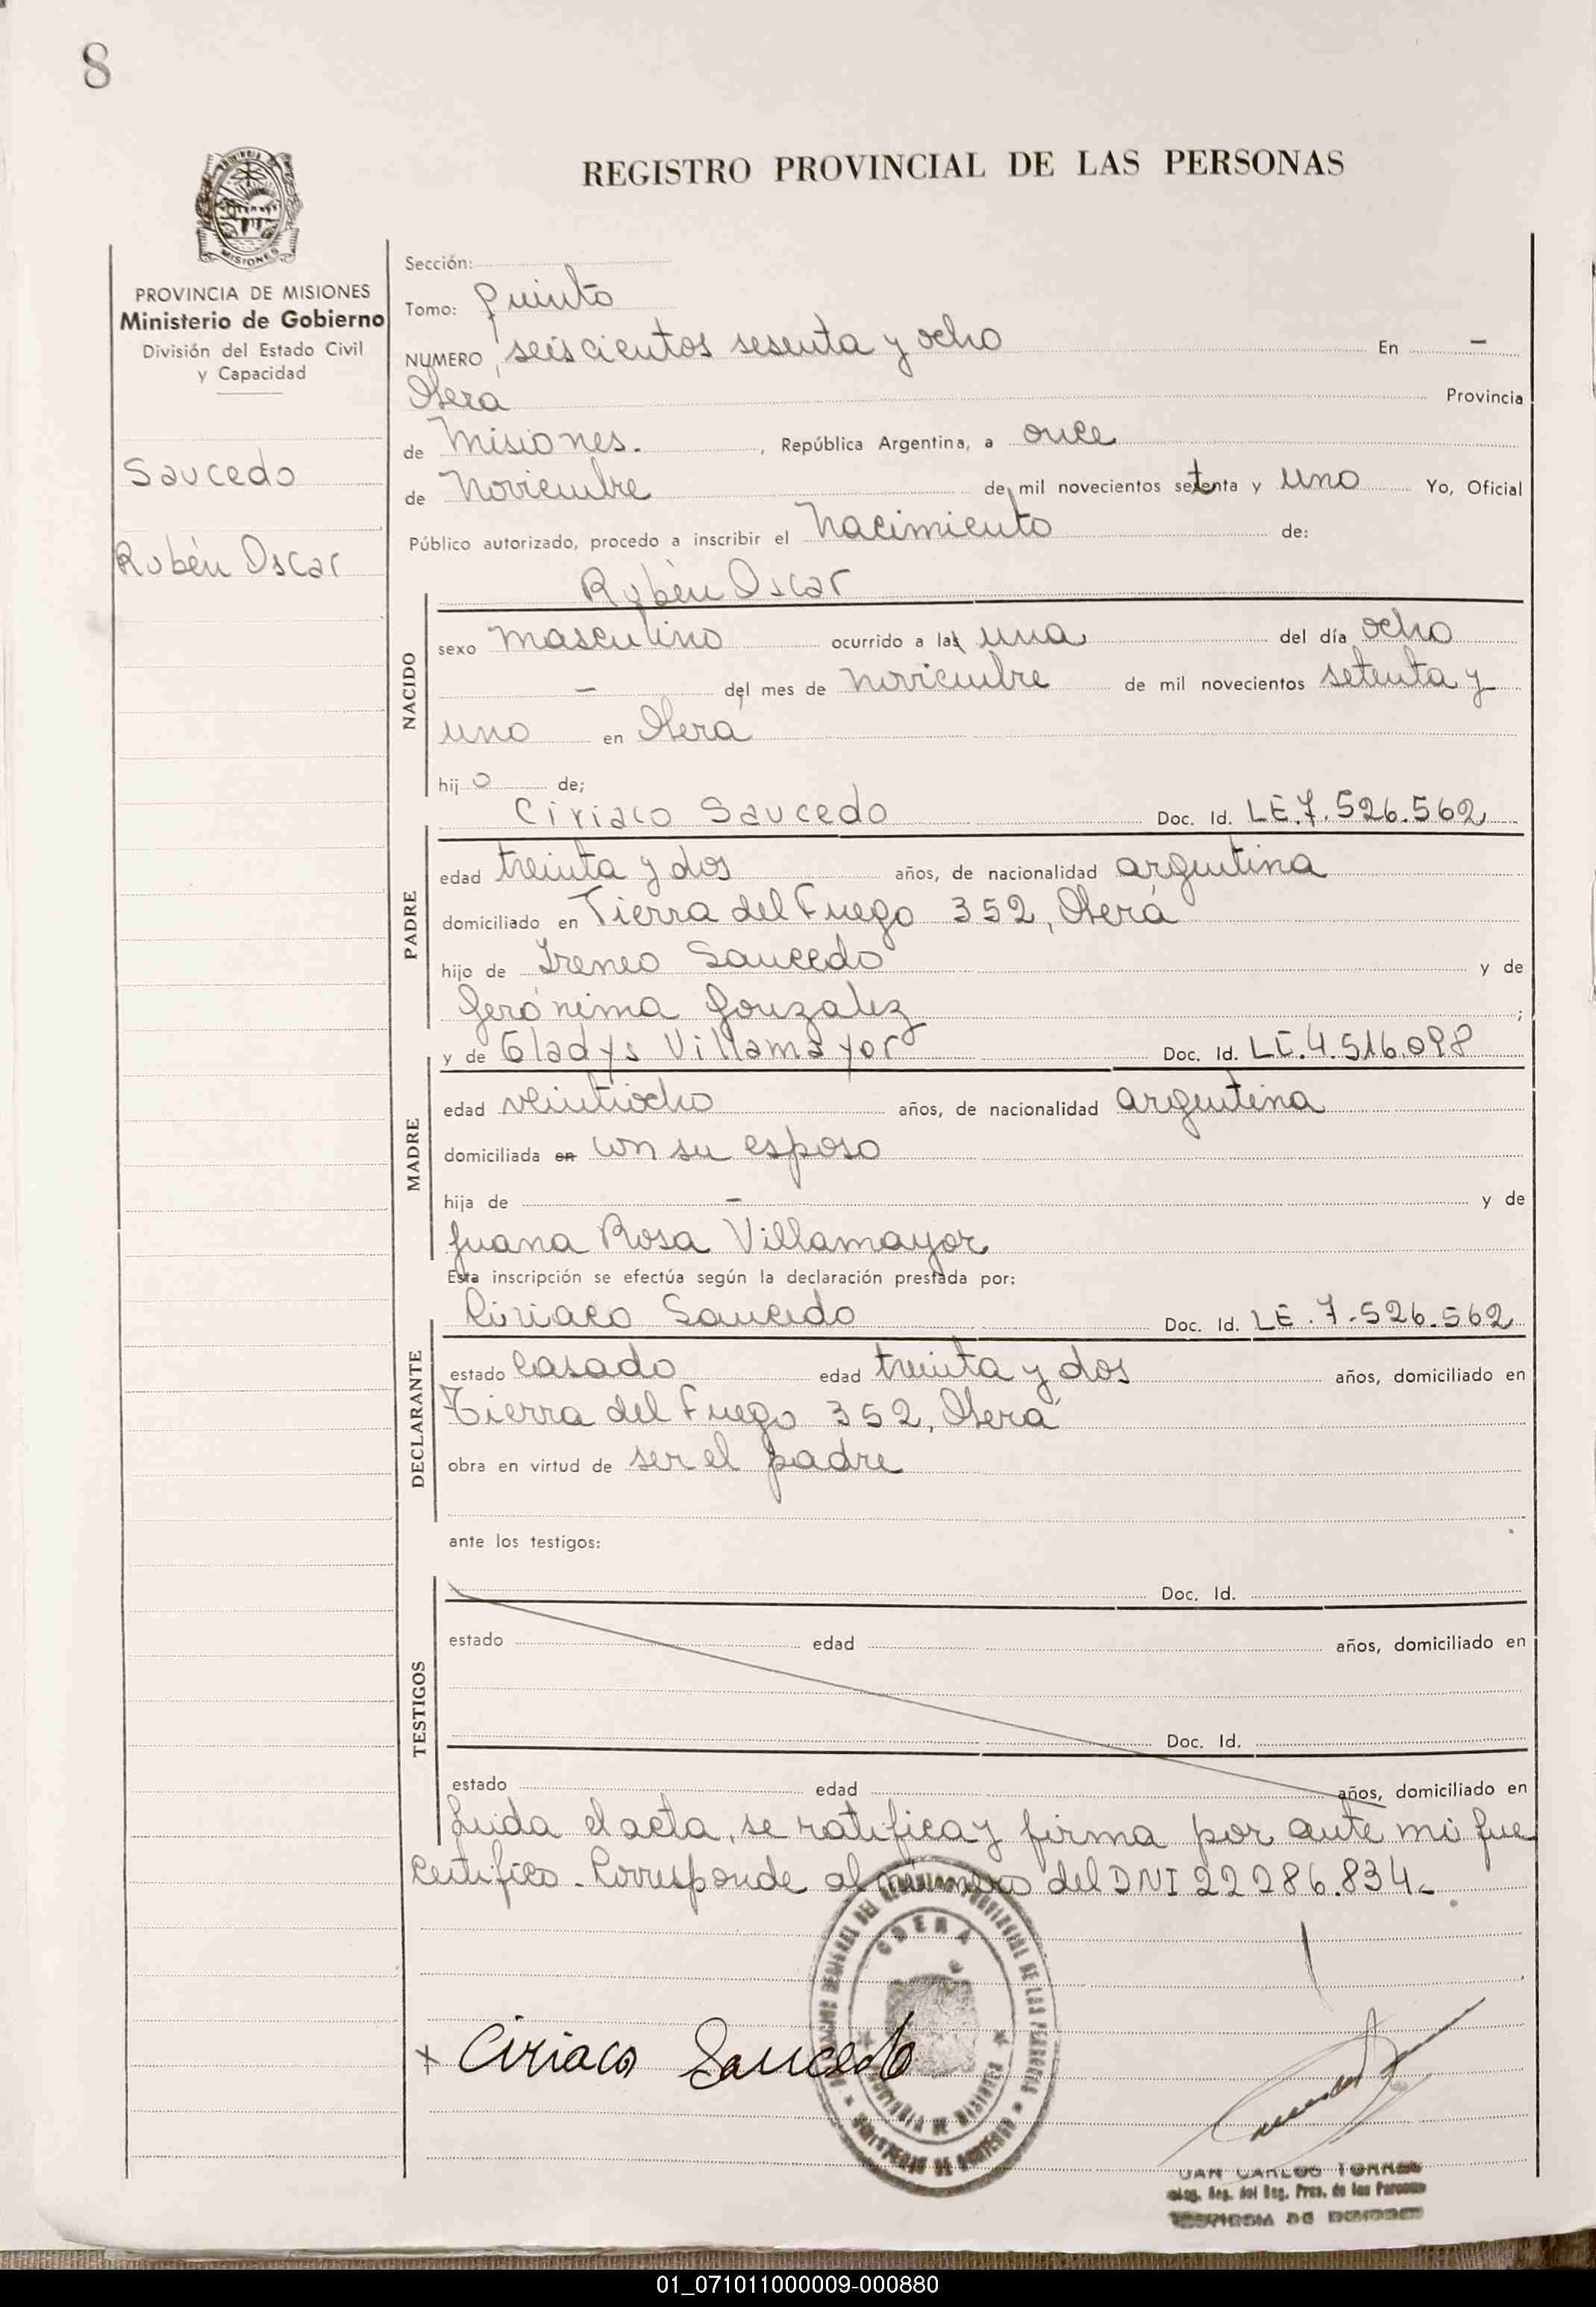 8
REGISTRO PROVINCIAL DE LAS PERSONAS
PROVINCIA DE MISIONES
Ministerio de Gobierno
División del Estado Civil
y Capacidad
Saucedo
Rubén Oscar
Sección:
Tomo: quinto
NUMERO seiscientos sesenta y ocho En -
Oberá Provincia
de Misiones. , República Argentina, a once
de Noviembre de mil novecientos setenta y uno Yo, Oficial
Público autorizado, procedo a inscribir el nacimiento de:
NACIDO
Rubén Oscar
sexo masculino ocurrido a las una del día ocho
- del mes de noviembre de mil novecientos setenta y
uno en Oberá
hijo de;
PADRE
Ciriaco Saucedo Doc. Id. LE.7.526.562
edad treinta y dos años, de nacionalidad argentina
domiciliado en Tierra del Fuego 352, Oberá
hijo de Ireneo Saucedo y de
Gerónima Gonzalez ;
MADRE
y de Gladys Villamayor Doc. Id. LC.4.516.098
edad veintiocho años, de nacionalidad argentina
domiciliada en con su esposo
hija de - y de
Juana Rosa Villamayor
Esta inscripción se efectúa según la declaración prestada por:
DECLARANTE
Ciriaco Saucedo Doc. Id. LE.7.526.562
estado casado edad treinta y dos años, domiciliado en
Tierra del Fuego 352, Oberá
obra en virtud de ser el padre
ante los testigos:
TESTIGOS
Doc. Id.
estado edad años, domiciliado en
Doc. Id.
estado edad años, domiciliado en
Leida el acta, se ratifica y firma por ante mi que
certifico. Corresponde al número del DNI 22.286.834.
x Ciriaco Saucedo
OBERA
MISIONES
JUAN CARLOS TORRES
01_071011000009-000880